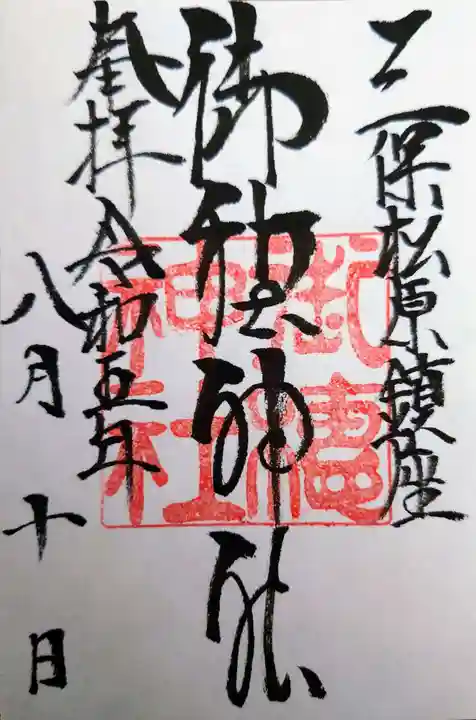 三保松原鎮座
御穂神社
奉拝 令和五年
八月十日
御穗
神社